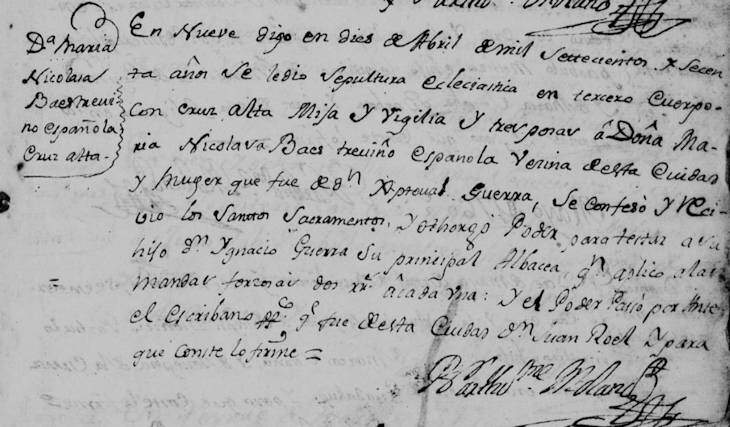 Da. Maria
Nicolasa
Baestrevi-
no española
Cruz alta.
En Nueve digo en dies de Abril de mil settecientos y secen
ta años Se le dio Sepultura eclesiastica en tercero Cuerpo-
Con cruz alta Misa y Vigilia y tres posas a Doña Ma-
ria Nicolasa Baes treviño española Vecina de esta Ciudad
y Muger que fue de Dn. Xptoval Guerra, Se Confesó y Reci
vio los Santos Sacramentos, y othorgó Poder para testar a su
hijo Dn. Ygnacio Guerra Su principal Albacea, qn. aplico a las
mandas forzosas dos rrs. â cada Vna: Y el Poder Pasó por Ante
el Escribano qe. fue de esta Ciudad Dn. Juan Roel Y para
que Conste lo firmé =